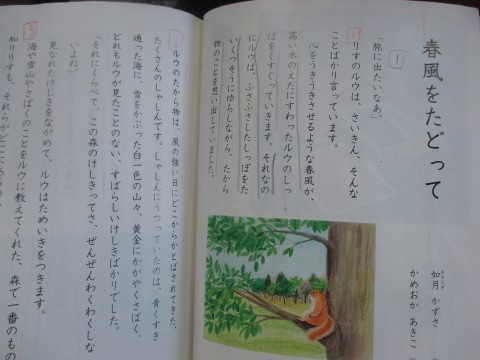 春風をたどって
如月 かずさ
かめおか あきこ
1
「旅に出たいなあ。」
りすのルウは、さいきん、そんな
ことばかり言っています。
心をうきうきさせるような春風が、
高い木のえだにすわったルウのしっ
ぽをくすぐっていきます。それなの
にルウは、ふさふさしたしっぽをた
いくつそうにゆらしながら、たから
物のことを思い出していました。
ルウのたから物は、風の強い日にどこからかとばされてきた、
たくさんのしゃしんです。しゃしんにうつっていたのは、青くすき
通った海に、雪をかぶった白一色の山々、黄金にかがやくさばく。
どれもルウが見たことのない、すばらしいけしきばかりでした。
「それにくらべて、この森のけしきってさ、ぜんぜんわくわくしな
いよね。」
見なれたけしきをながめて、ルウはためいきをつきます。
海や雪山やさばくのことをルウに教えてくれた、森で一番のもの
知りりすも、それらが